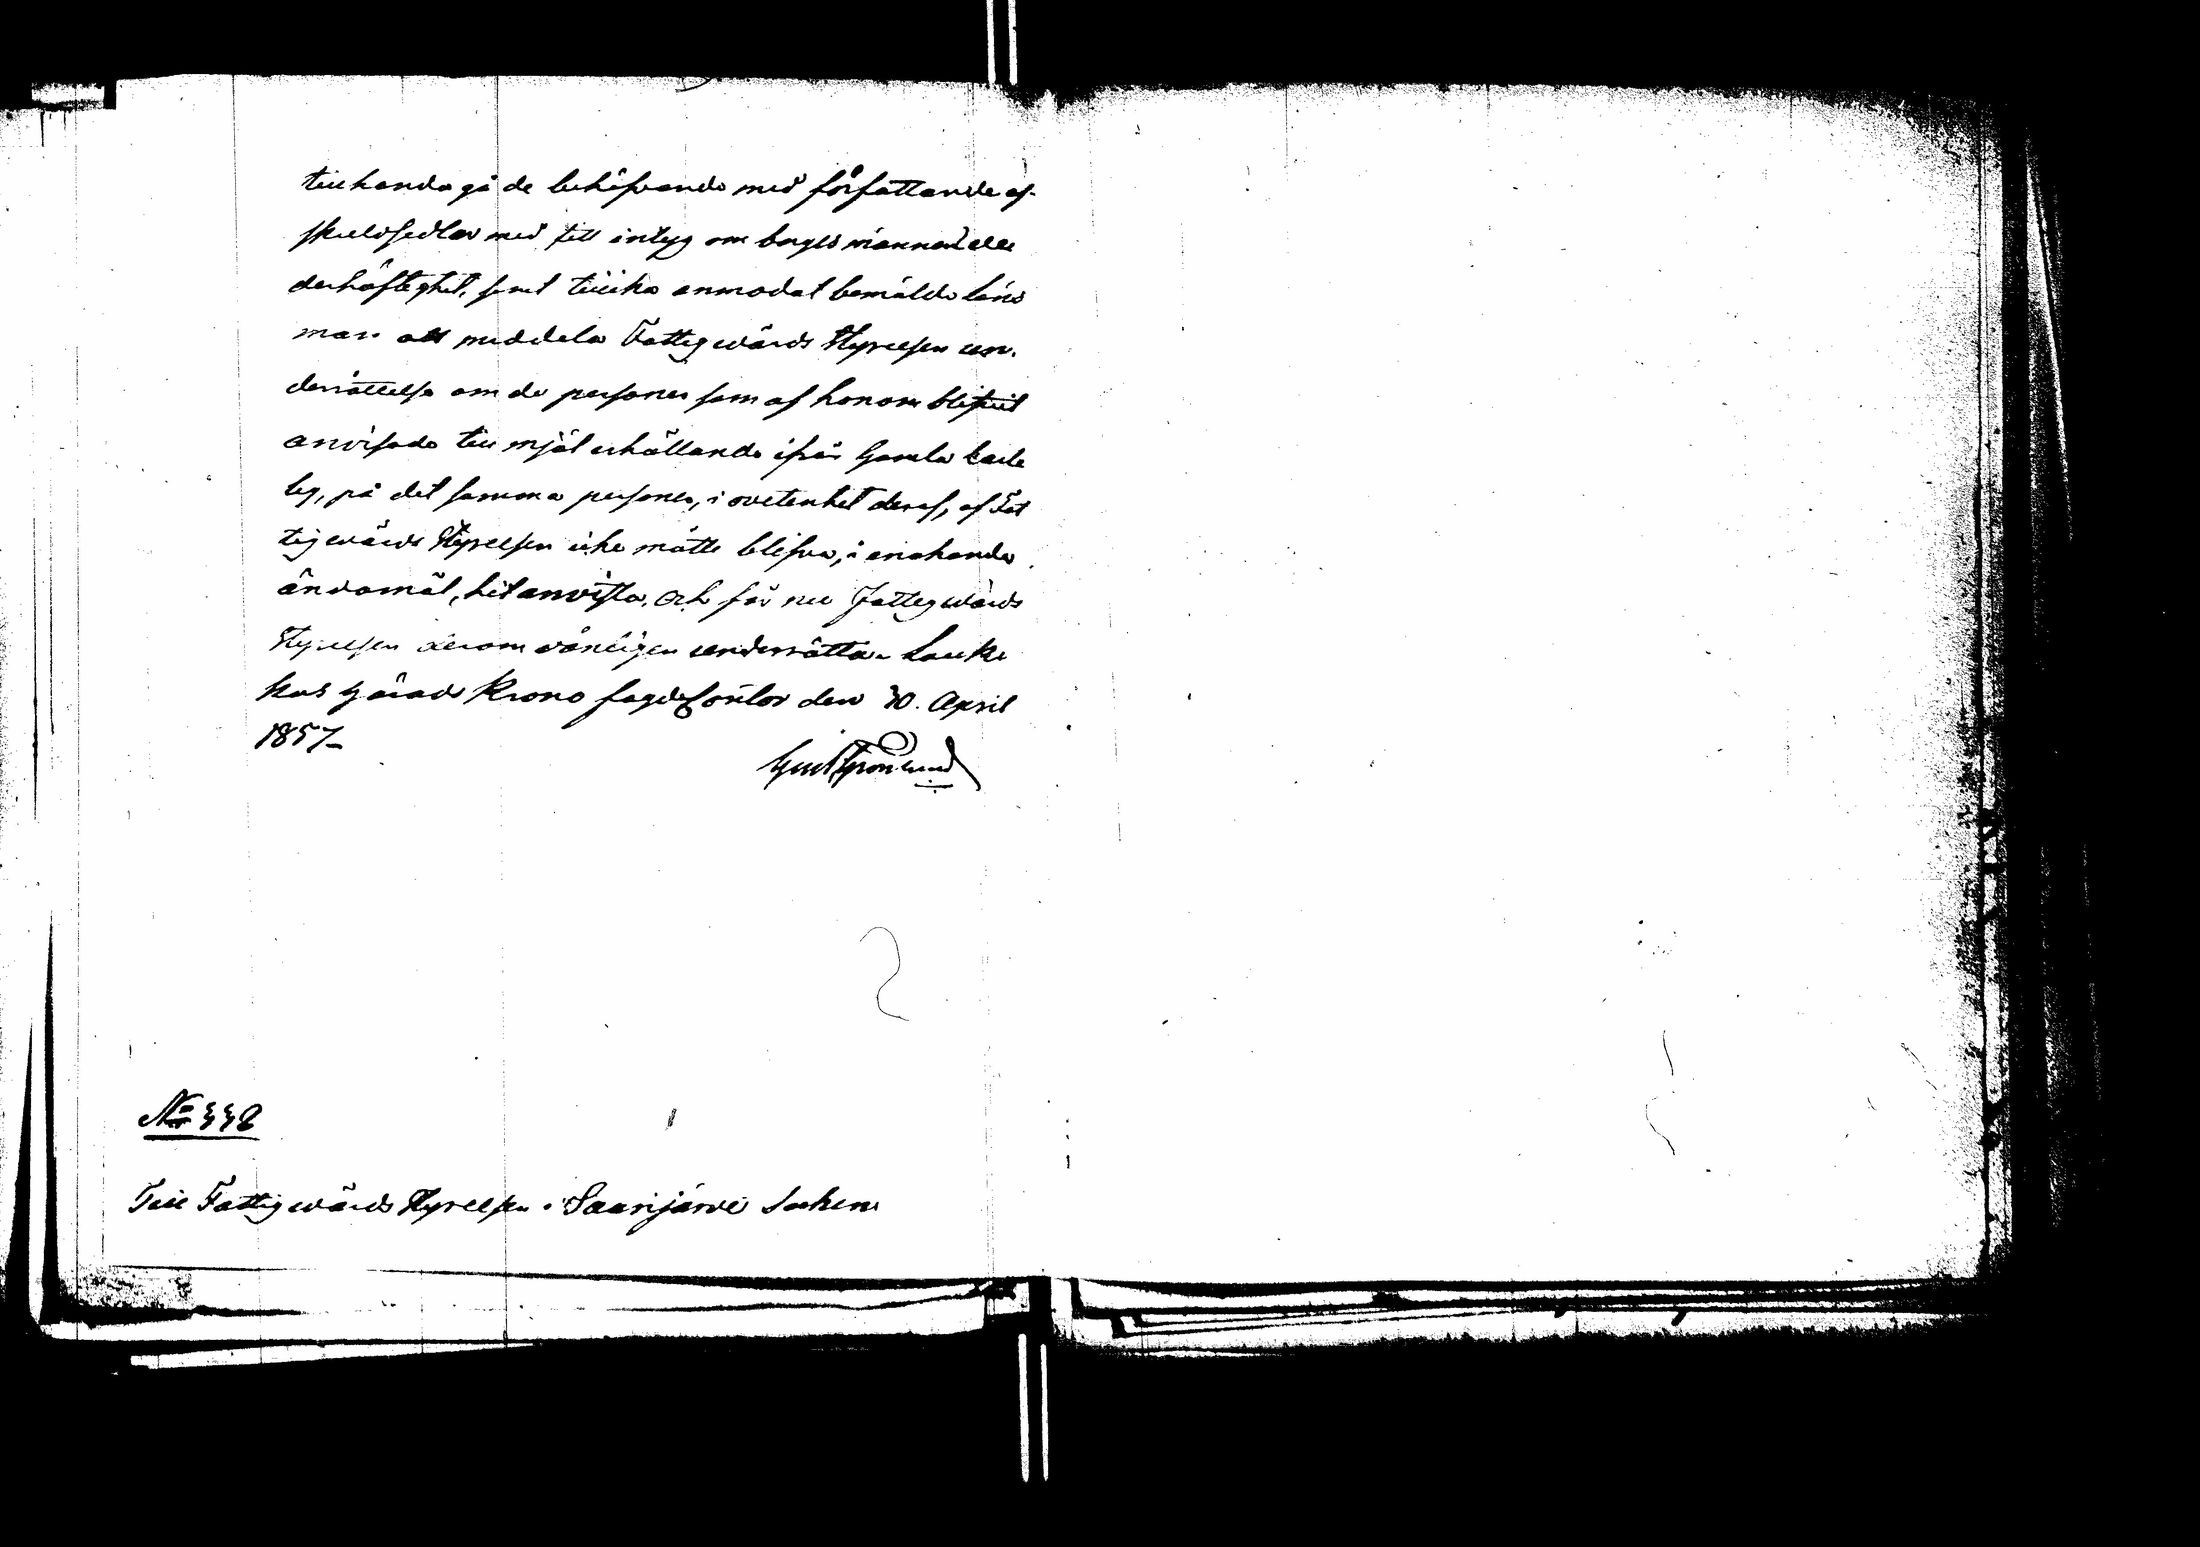 tillhanda gå de behöfvande med författande af
skuldsedlar med sitt intyg om borgesmännens
vederhäftighet, samt tillika anmodat bemälde läns
man att meddela Fattigvårds Styrelsen un-
derrättelse om de personer som af honom blifvit
anvisade till mjöl erhållande ifrån Gamla Karle
by, på det samma personer, i ovetenhet deraf, af Fat
tigvårds Styrelsen icke måtte blifva, i enahanda
ändamål, hitanvista, och får nu Fattigvårds
Styrelsen derom vänligen underrätta. Lauk
kas Härads Krono fogdekontor den 30. April
1857_
Gust Grönlund
No 338
Till Fattigvårds Styrelsen i Saarijärvi Socken